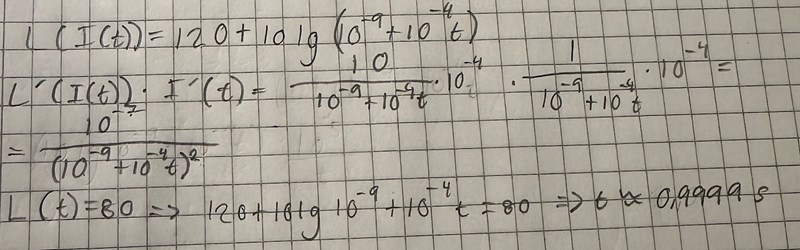 L(I(t))=120+10lg(10^-9+10^-4 t)
L´(I(t))·I´(t)= 10/(10^-9+10^-4 t)·10^-4 · 1/(10^-9+10^-4 t)·10^-4=
= 10^-7/(10^-9+10^-4 t)^2
L(t)=80 => 120+10lg 10^-9+10^-4 t=80 => t≈0,9999 s